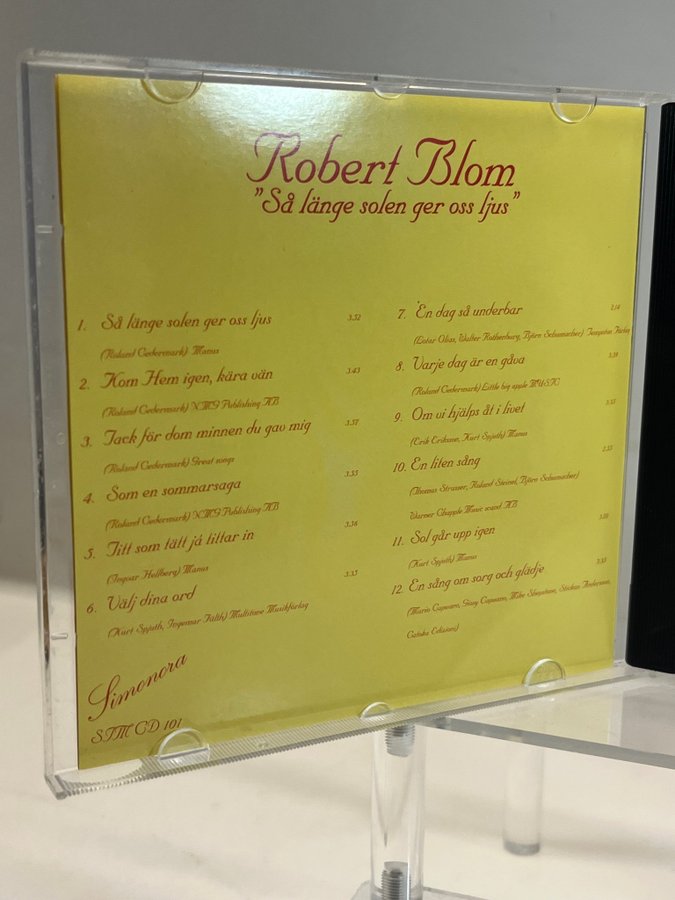 Robert Blom
"Så länge solen ger oss ljus"
1. Så länge solen ger oss ljus 3.52
(Roland Cedermark) Manus
2. Kom Hem igen, kära vän 3.43
(Roland Cedermark) NMG Publishing AB
3. Tack för dom minnen du gav mig 3.57
(Roland Cedermark) Great songs
4. Som en sommarsaga 3.55
(Roland Cedermark) NMG Publishing AB
5. Titt som tätt já tittar in 3.16
(Ingvar Hellberg) Manus
6. Välj dina ord 3.35
(Kurt Spjuth, Ingemar Fälth) Multitone Musikförlag
7. En dag så underbar 2.14
(Lotar Olias, Walter Rothenburg, Björn Schumacher)
8. Varje dag är en gåva
(Roland Cedermark) Little big apple MUSIC
9. Om vi hjälps åt i livet
(Erik Eriksson, Kurt Spjuth) Manus
10. En liten sång 2.55
(Thomas Strasser, Roland Steinel, Björn Schumacher)
Warner Chapple Music AB
11. Sol går upp igen
(Kurt Spjuth) Manus
12. En sång om sorg och glädje
(Mario Capuano, Giosy Capuano, Mike Shepstone,
Simonora
STM CD 101